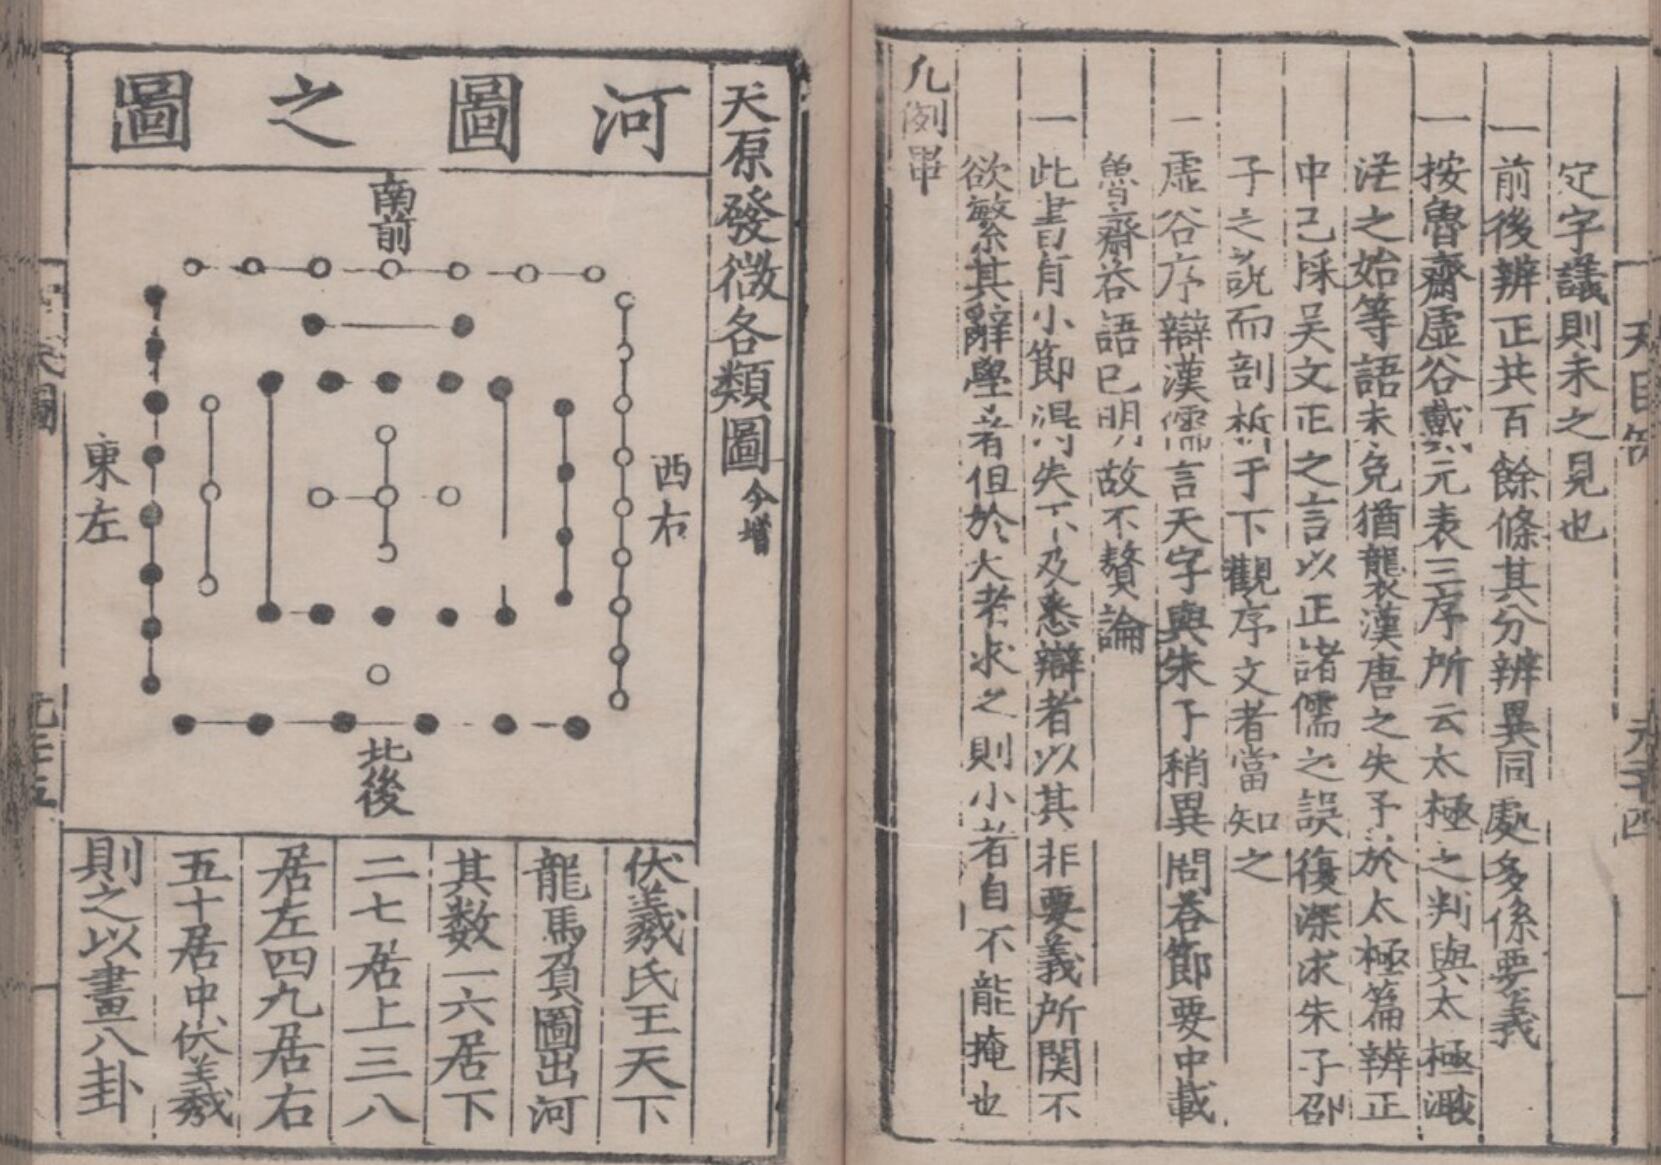 定字議則未之見也
一前後辨正共百餘條其分辨異同處多係要義
一按魯齋虛谷戴元表三序所云太極之判與太極溟
涬之始等語未免猶襲漢唐之失予於太極篇辨正
中已採吳文正之言以正諸儒之誤復深求朱子邵
子之說而剖析于下觀序文者當知之
一虛谷序辯漢儒言天字與朱子稍異問荅節要中載
魯齋荅語已明故不贅論
一此書有小節得失不及悉辯者以其非要義所関不
欲繁其辭學者但於大者求之則小者自不能掩也
凡例畢
天原發微各類圖 今增
河圖之圖
南前
東左
西右
北後
伏羲氏王天下
龍馬負圖出河
其数一六居下
二七居上三八
居左四九居右
五十居中伏羲
則之以畫八卦